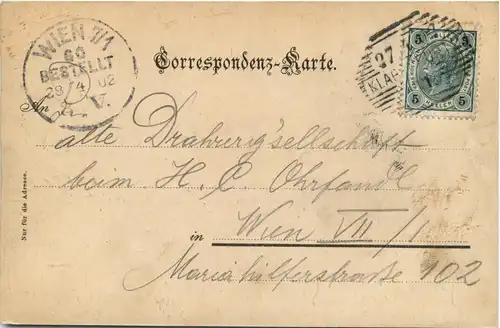 WIEN 7/1
60
BESTELLT
28 4 02
V.
Correspondenz-Karte.
5 5
27
KLAG
5 5
An
alte Drahrergesellschaft
beim H. C. Ohrfandl
in Wien VII/1
Mariahilferstraße 102
Nur für die Adresse.